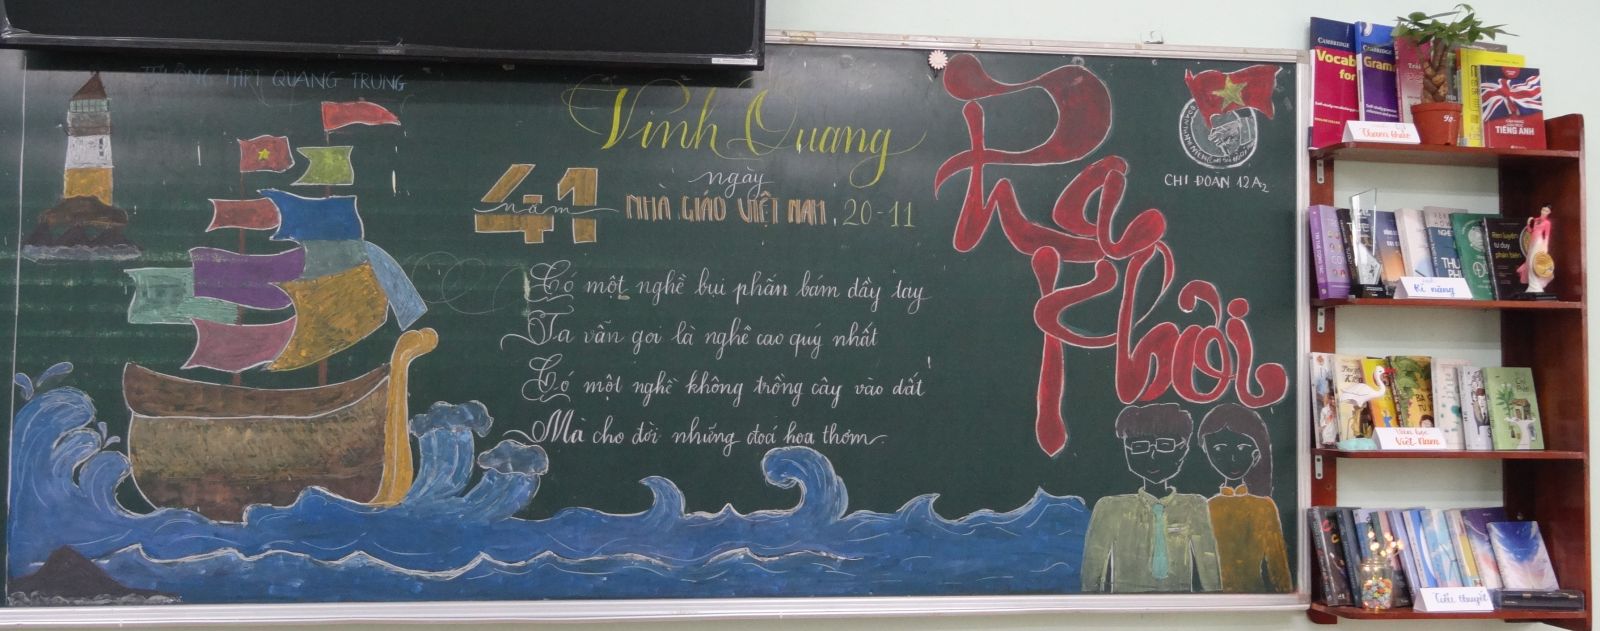 TRƯỜNG THPT QUANG TRUNG
Vinh Quang
41 năm
ngày
NHÀ GIÁO VIỆT NAM 20-11
Có một nghề bụi phấn bám đầy tay
Ta vẫn gọi là nghề cao quý nhất
Có một nghề không trồng cây vào đất
Mà cho đời những đoá hoa thơm
Ra Khơi
CHI ĐOÀN 12A2
CAMBRIDGE
Vocab
for
CAMBRIDGE
Gram
TIẾNG ANH
Tham khảo
Rèn luyện
tư duy
phản biện
Kĩ năng
Văn học
Việt Nam
Tiểu thuyết